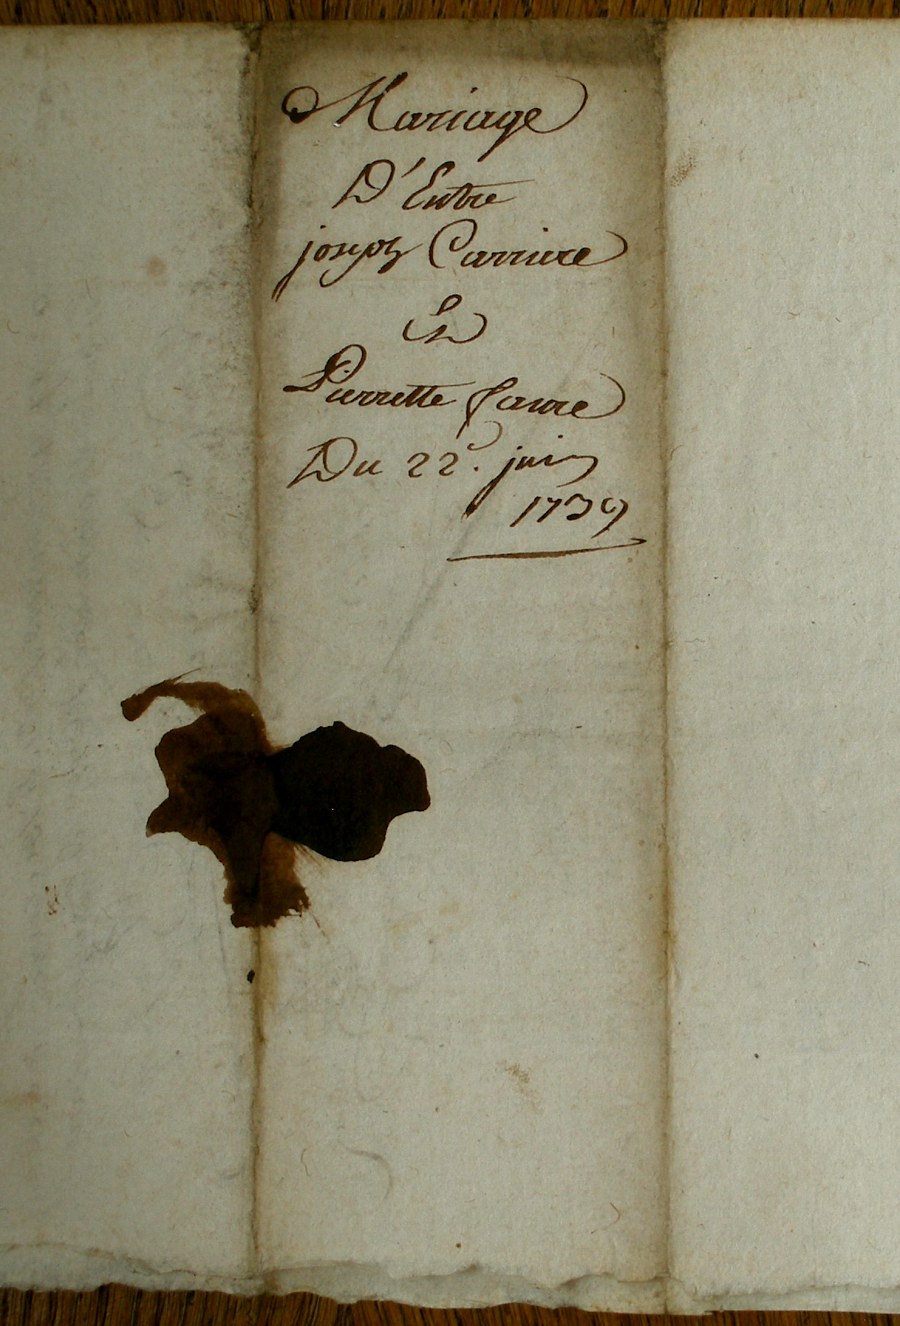 Mariage
D'Entre
joseph Carriere
Et
Pierrette faure
Du 22e. juin
1739